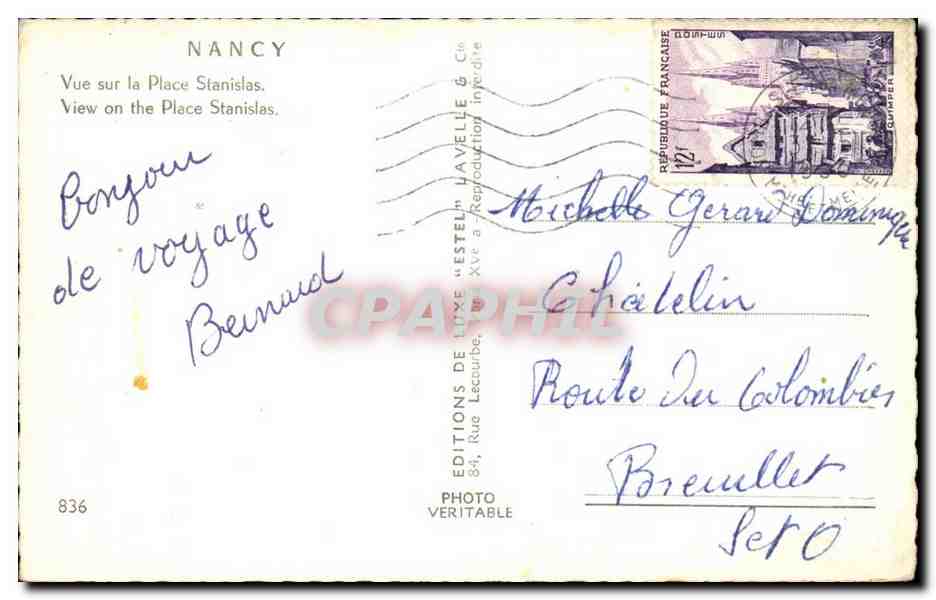 NANCY
Vue sur la Place Stanislas.
View on the Place Stanislas.
Bonjour
de voyage
Bernard
836
EDITIONS DE LUXE "ESTEL" LAVELLE & Cie
84, Rue Lecourbe, XVe a Reproduction interdite
PHOTO
VERITABLE
RÉPUBLIQUE FRANÇAISE
POSTES
12f
QUIMPER
Michelle Gerard Dominique
Châtelin
Route du Colombier
Breuillet
S et O
CPAPHIL